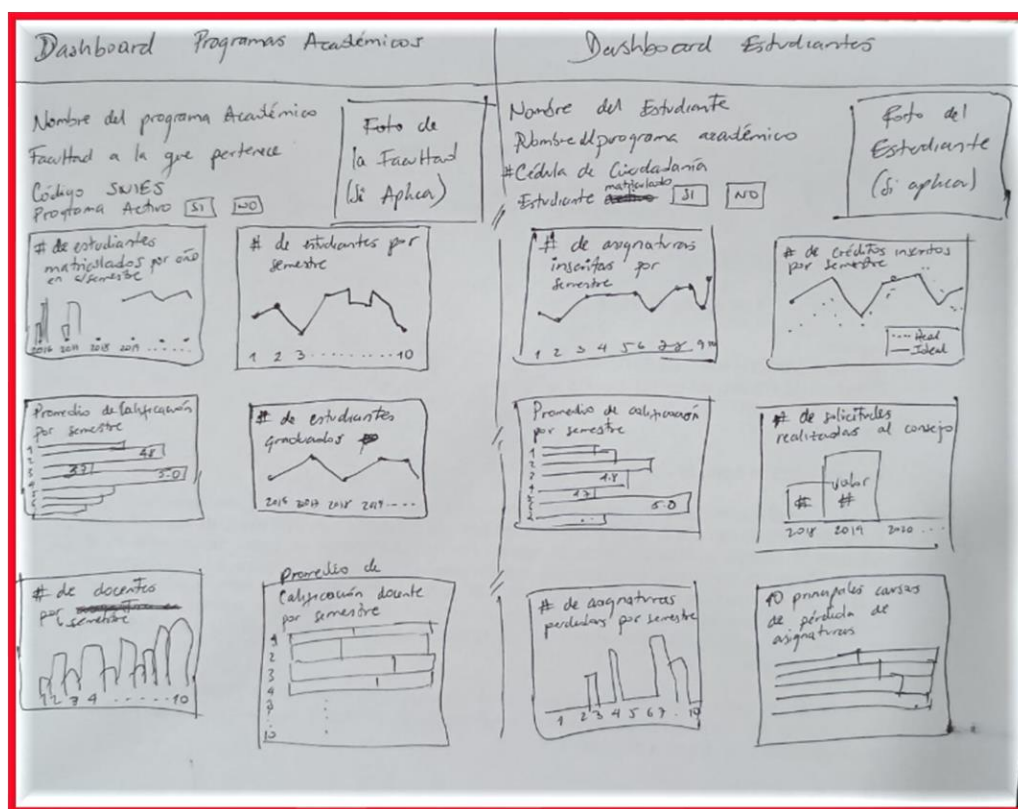 Dashboard Programas Académicos
Nombre del programa Académico
Facultad a la que pertenece
Código SNIES
Programa Activo SI NO
Foto de
la Facultad
(Si Aplica)
# de estudiantes
matriculados por año
en c/semestre
2016 2017 2018 2019 ......
# de estudiantes por
semestre
1 2 3 .......... 10
Promedio de Calificación
por semestre
1
2
3
4
5
6
4.8
3.2
5.0
# de estudiantes
graduados
2016 2017 2018 2019 ....
# de docentes
por
semestre
1 2 3 4 ...... 10
Promedio de
Calificación docente
por semestre
1
2
3
4
5
10
Dashboard Estudiantes
Nombre del Estudiante
Nombre del programa académico
# Cédula de Ciudadanía
matriculado
Estudiante SI NO
Foto del
Estudiante
(Si aplica)
# de asignaturas
inscritas por
semestre
1 2 3 4 5 6 7 8 9 10
# de créditos inscritos
por semestre
.... Real
— Ideal
Promedio de calificación
por semestre
1
2
3
4
5
4.8
4.7
5.0
# de solicitudes
realizadas al consejo
valor
# #
2018 2019 2020 ....
# de asignaturas
perdidas por semestre
1 2 3 4 5 6 7 . 10
10 principales causas
de pérdida de
asignaturas